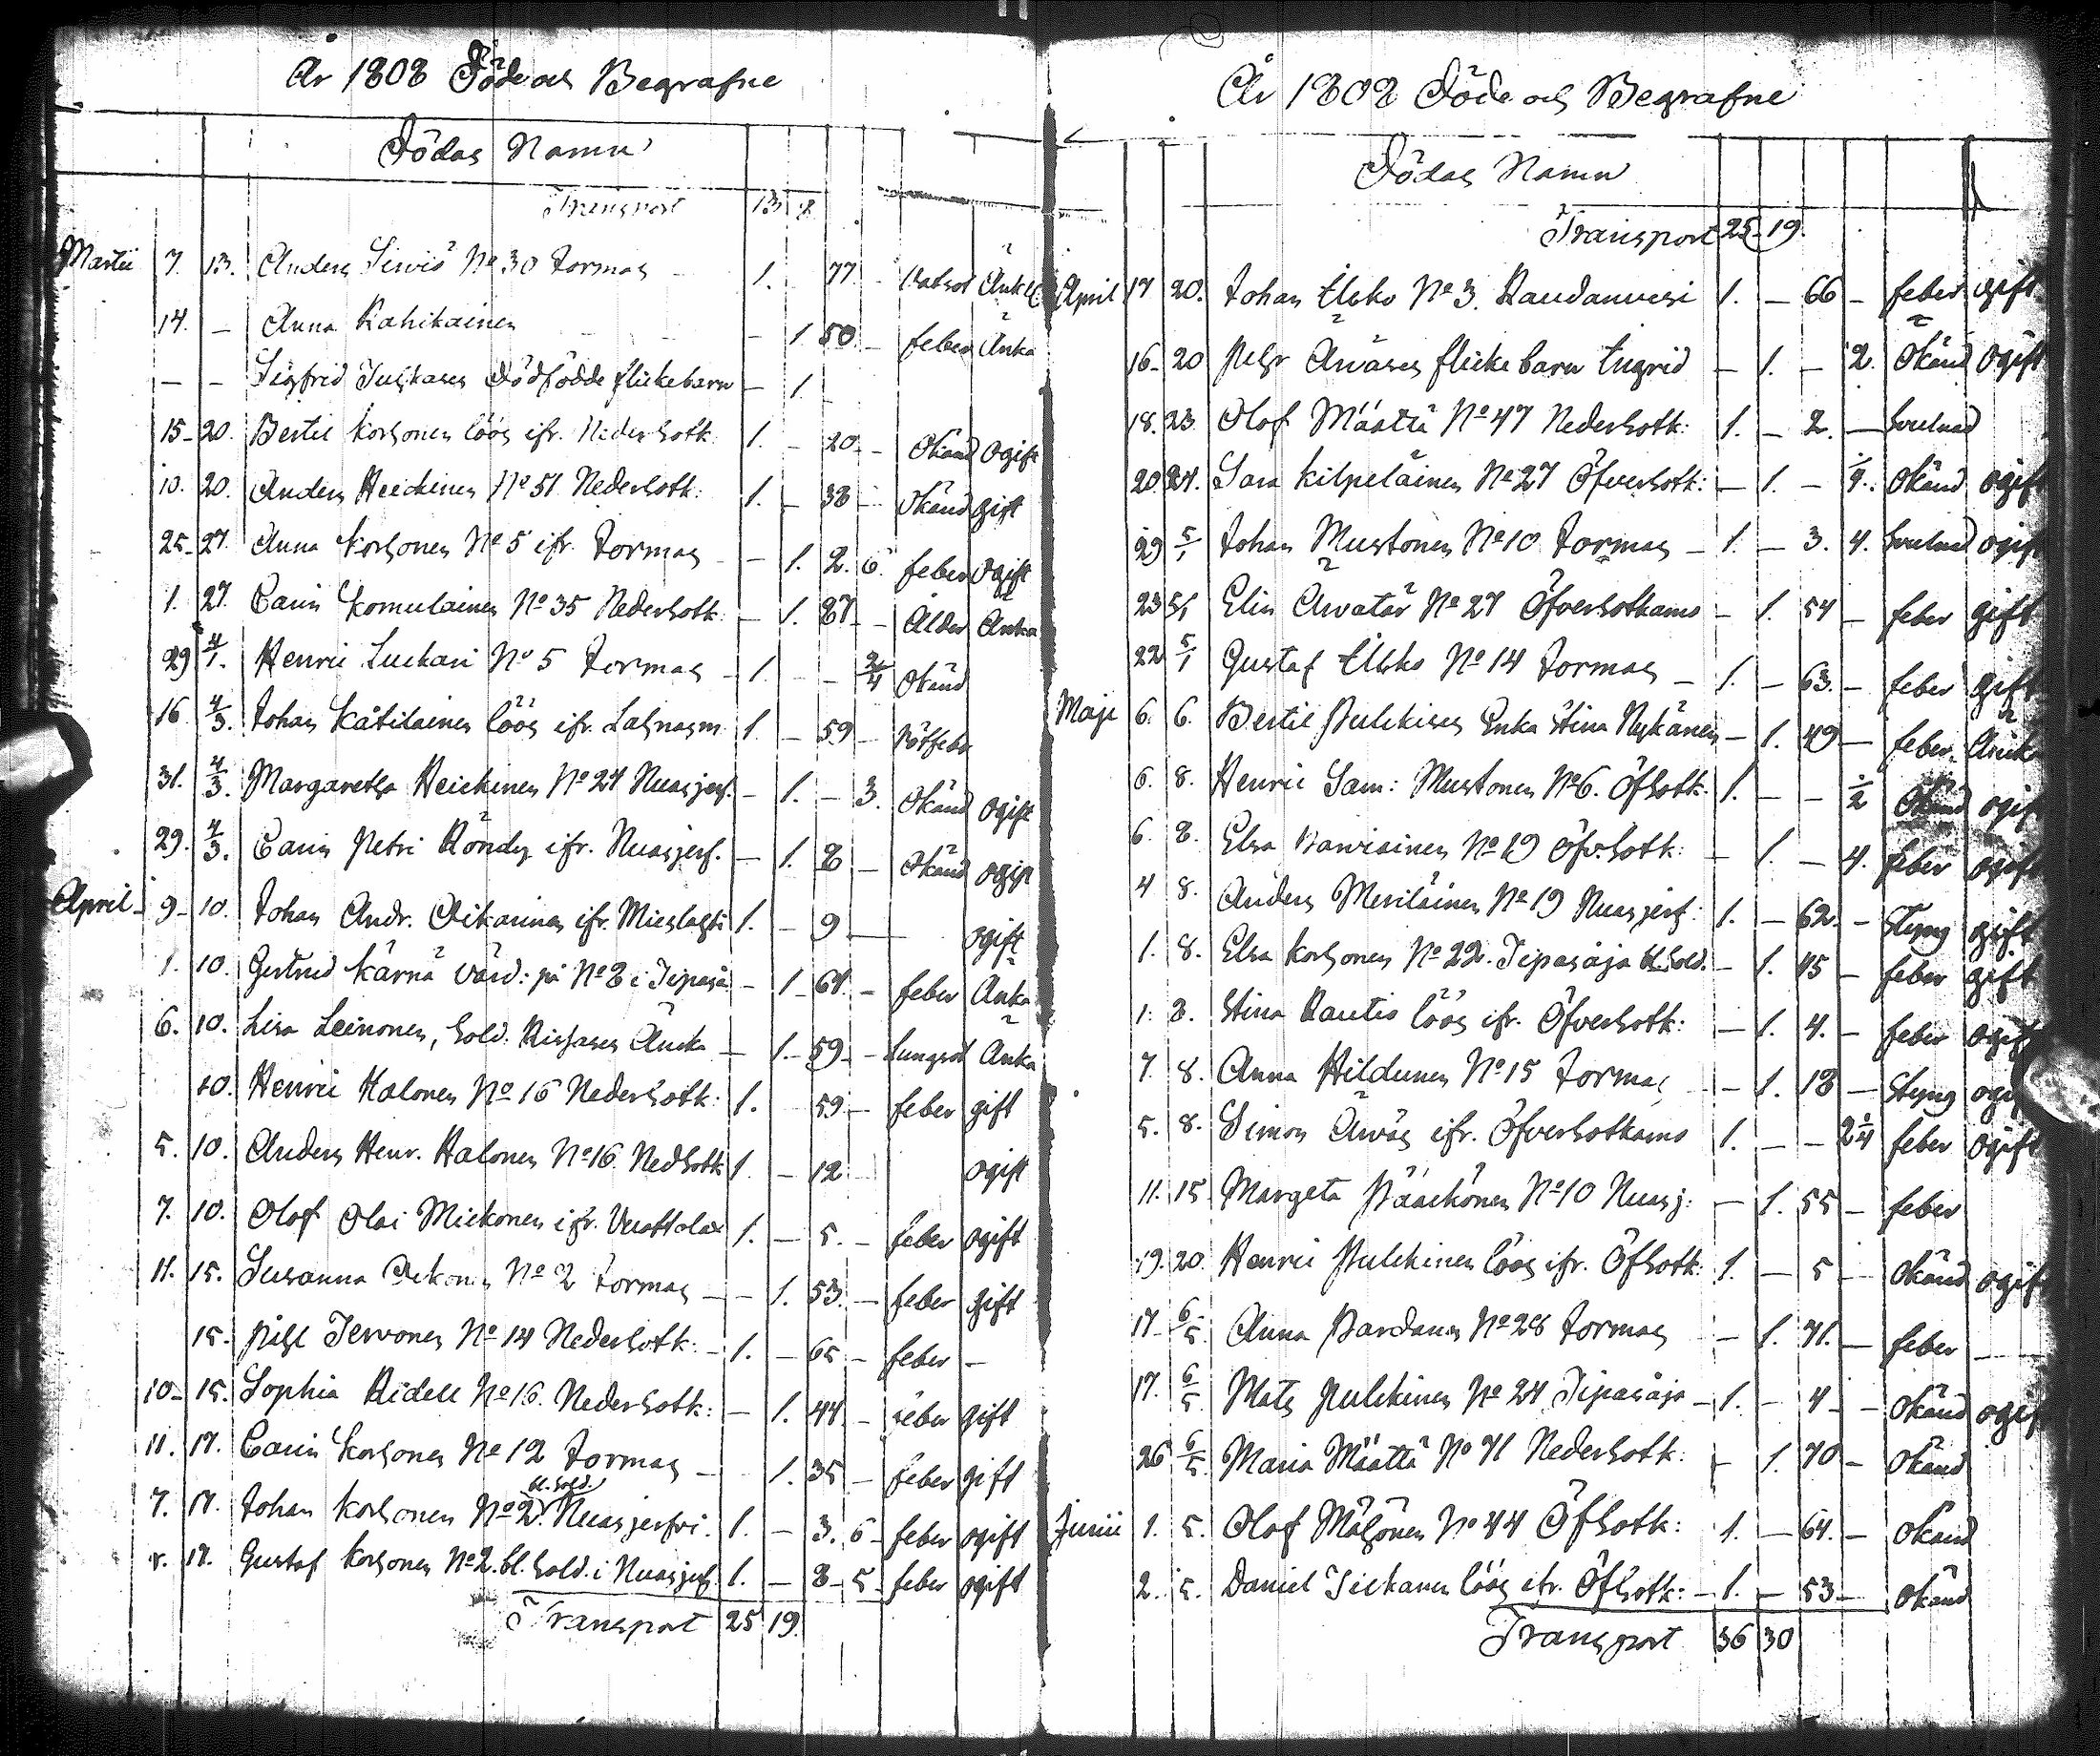 År 1808 Döde och Begrafne
Dödas Namn
Transport 13 8
Martii 7. 13. Anders Sirviö No 30 Sormas 1. 77 - Vatsot
14. - Anna Kahikainen - 1 50 - feber Änka
- - Sigfrid Juskases Dödfödde flickebarn - 1
15 - 20. Bertil Korhonen löös ifr. Nederhotk. 1. - 20 - Okänd Ogift
10. 20. Anders Heickinen No 51 Nederhotk: 1. - 38 - Okänd gift
25 - 27. Anna Korhonen No 5 ifr. Sormas - 1. 2. 6. feber Ogift
1. 27. Carin Komulainen No 35 Nederhotk - 1. 87 - Ålder Änka
29 4/1. Henric Luckari No 5 Sormas - 1. - 2/4 Okänd
16. 4/3. Johan Kätilainen löös ifr. Lahnasm. 1. - 59 - Rötfeber
31. 4/3. Margaretha Heickinen No 24 Nuasjerf. - 1. - 3. Okänd ogift
29. 4/3. Carin Petri ifr. Nuasjerf. - 1. 8 - Okänd ogift
April - 9 - 10. Johan Andr. Oikarinen ifr. Mieslahti 1. - 9 - ogift
1. 10. Gertrud Kärnä värd: på No 8 i Tipaså - 1 - 64. - feber Änka
6. 10. Lisa Leinonen, Sold. Änka - 1. - 59 - - Lungsot Änka
10. Henric Halonen No 16 Nederhotk: 1. 59 - feber gift
5. 10. Anders Henr. Halonen No 16. Nedhotk 1. - 12 ogift
7. 10. Olof Olai Mickonen ifr. Vuottolax 1. - 5. - feber ogift
11. 15. Susanna No 2 Sormas - - 1. 53. - feber gift
15. Pehr Tervonen No 14 Nederhotk: - 1. - 65 - feber -
10 - 15. Sophia Ridell No 16. Nederhotk: - 1. 44. - feber gift
11. 17. Carin Korhonen No 12 Sormas - 1. 35 - feber gift
bl. Sold.
7. 17. Johan Korhonen No 2. Nuasjerfvi. 1. - 3. 6 - feber ogift
17. Gustaf Korhonen No 2. bl. Sold. i Nuasjerf. 1. - 8 - 5 - feber ogift
Transport 25 19.
År 1808 Döde och Begrafne
Dödas Namn
Transport 25 - 19.
April 17 20. Johan No 3. Raudanvesi 1. - 66 - feber gift
16 - 20 Pehr Äväses flickebarn Ingrid - 1. - 2. Okänd Ogift
18. 23. Olof Määttä No 47 Nederhotk: 1. - 2. - Svulnad
20. 24. Sara Kilpeläinen No 27 Öfverhotk: - 1. - Okänd ogift
29 5/1 Johan Mustonen No 10 Sormas - 1. - 3. 4. Svulnad ogift
23 5/1 Elin Avatar No 27 Öfverhotkamo - 1. 54 - feber gift
22 5/1 Gustaf No 14 Sormas - 1. - 63. - feber gift
Maji 6. 6. Bertil Pulckises Enka Stina Nykänen - 1. 49 - feber. Änka
6. 8. Henric Sam: Mustonen No 6. Öfhotk. 1. - - 1/2 Okänd ogift
6. 8. Elsa Karviainen No 19 Öfv.hotk: - 1. - 4. feber ogift
4 8. Anders Meriläinen No 19 Nuasjerf: 1. - 62. - Styng gift
1. 8. Elsa Korhonen No 22. Tipasåja bl. Sold. - 1. 45 - feber gift
1. 8. Stina Rautio löös ifr. Öfverhotk: - 1. 4. - feber ogift
7. 8. Anna Hildunen No 15 Sormas - 1. 18 - Styng ogift
5. 8. Simon Äväs ifr. Öfverhotkamo 1. - - 2 1/4 feber ogift
11. 15. Margeta Pääckönen No 10 Nuasj: - 1. 55 - feber
19. 20. Henric Pulckinen löös ifr. Öfhotk: 1. - 5 - Okänd ogift
17 - 6/5. Anna Pardanen No 28 Sormas - 1. 71. - feber -
17. 6/5. Mats Pulckinen No 24 Tipasåja - 1. - 4 - - Okänd ogift
26 6/5. Maria Määttä No 71 Nederhotk: - 1. 70 - Okänd
Junii 1. 5. Olof Mähönen No 44 Öfhotk: 1. - 64. - Okänd
2. 5. Daniel Sickanen löös ifr. Öfhotk: - 1. - 53 - Okänd
Transport 36 30